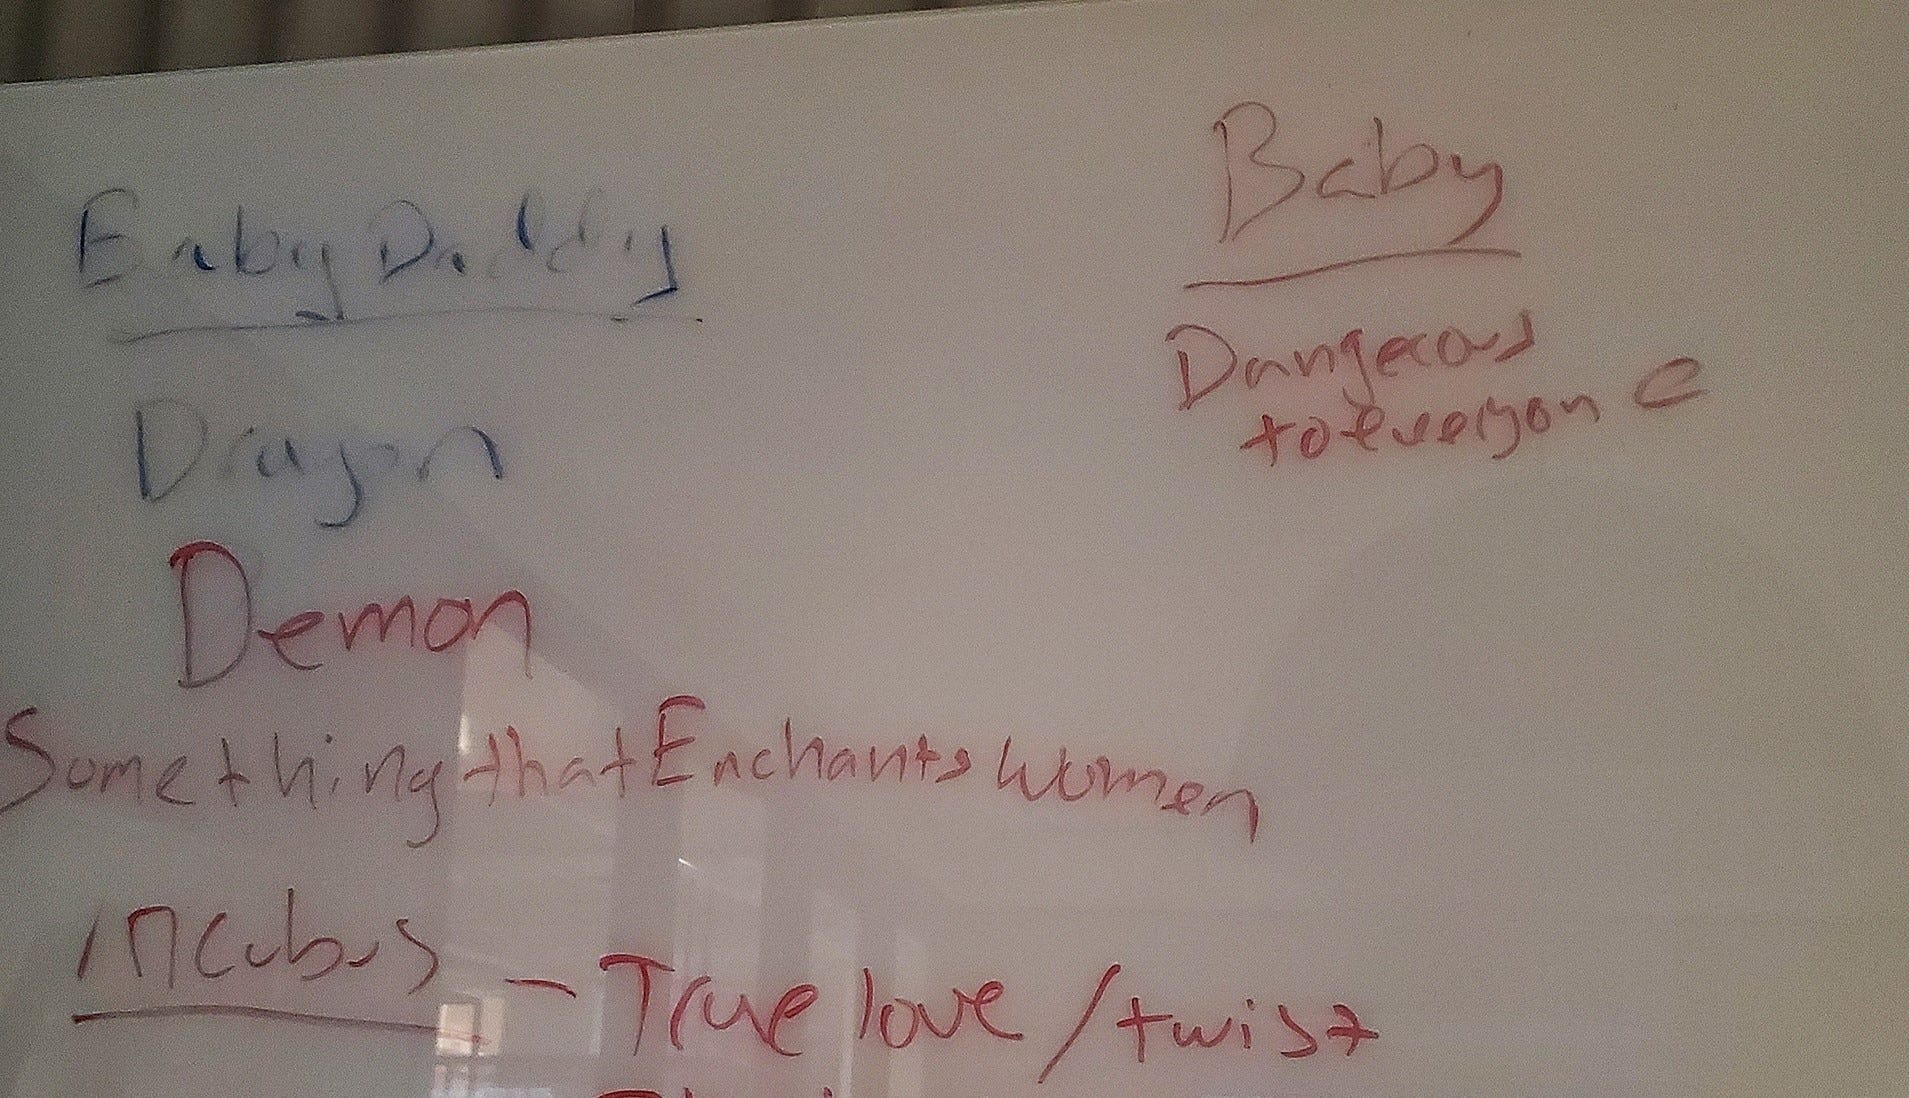 Baby Daddy
Dragon
Demon
Something that Enchants Women
incubus - True love / twist
Baby
Dangerous
to everyone